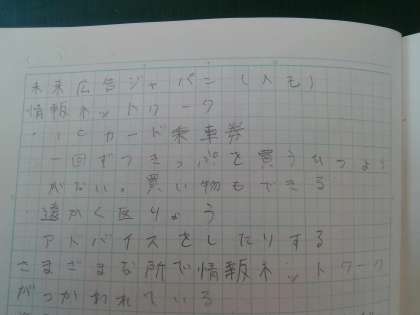 未来広告ジャパン(人も)
情報ネットワーク
・ICカード乗車券
一回ずつきっぷを買うひつよう
がない。買い物もできる
遠かく医りょう
アドバイスをしたりする
さまざまな所で情報ネットワーク
がつかわれている